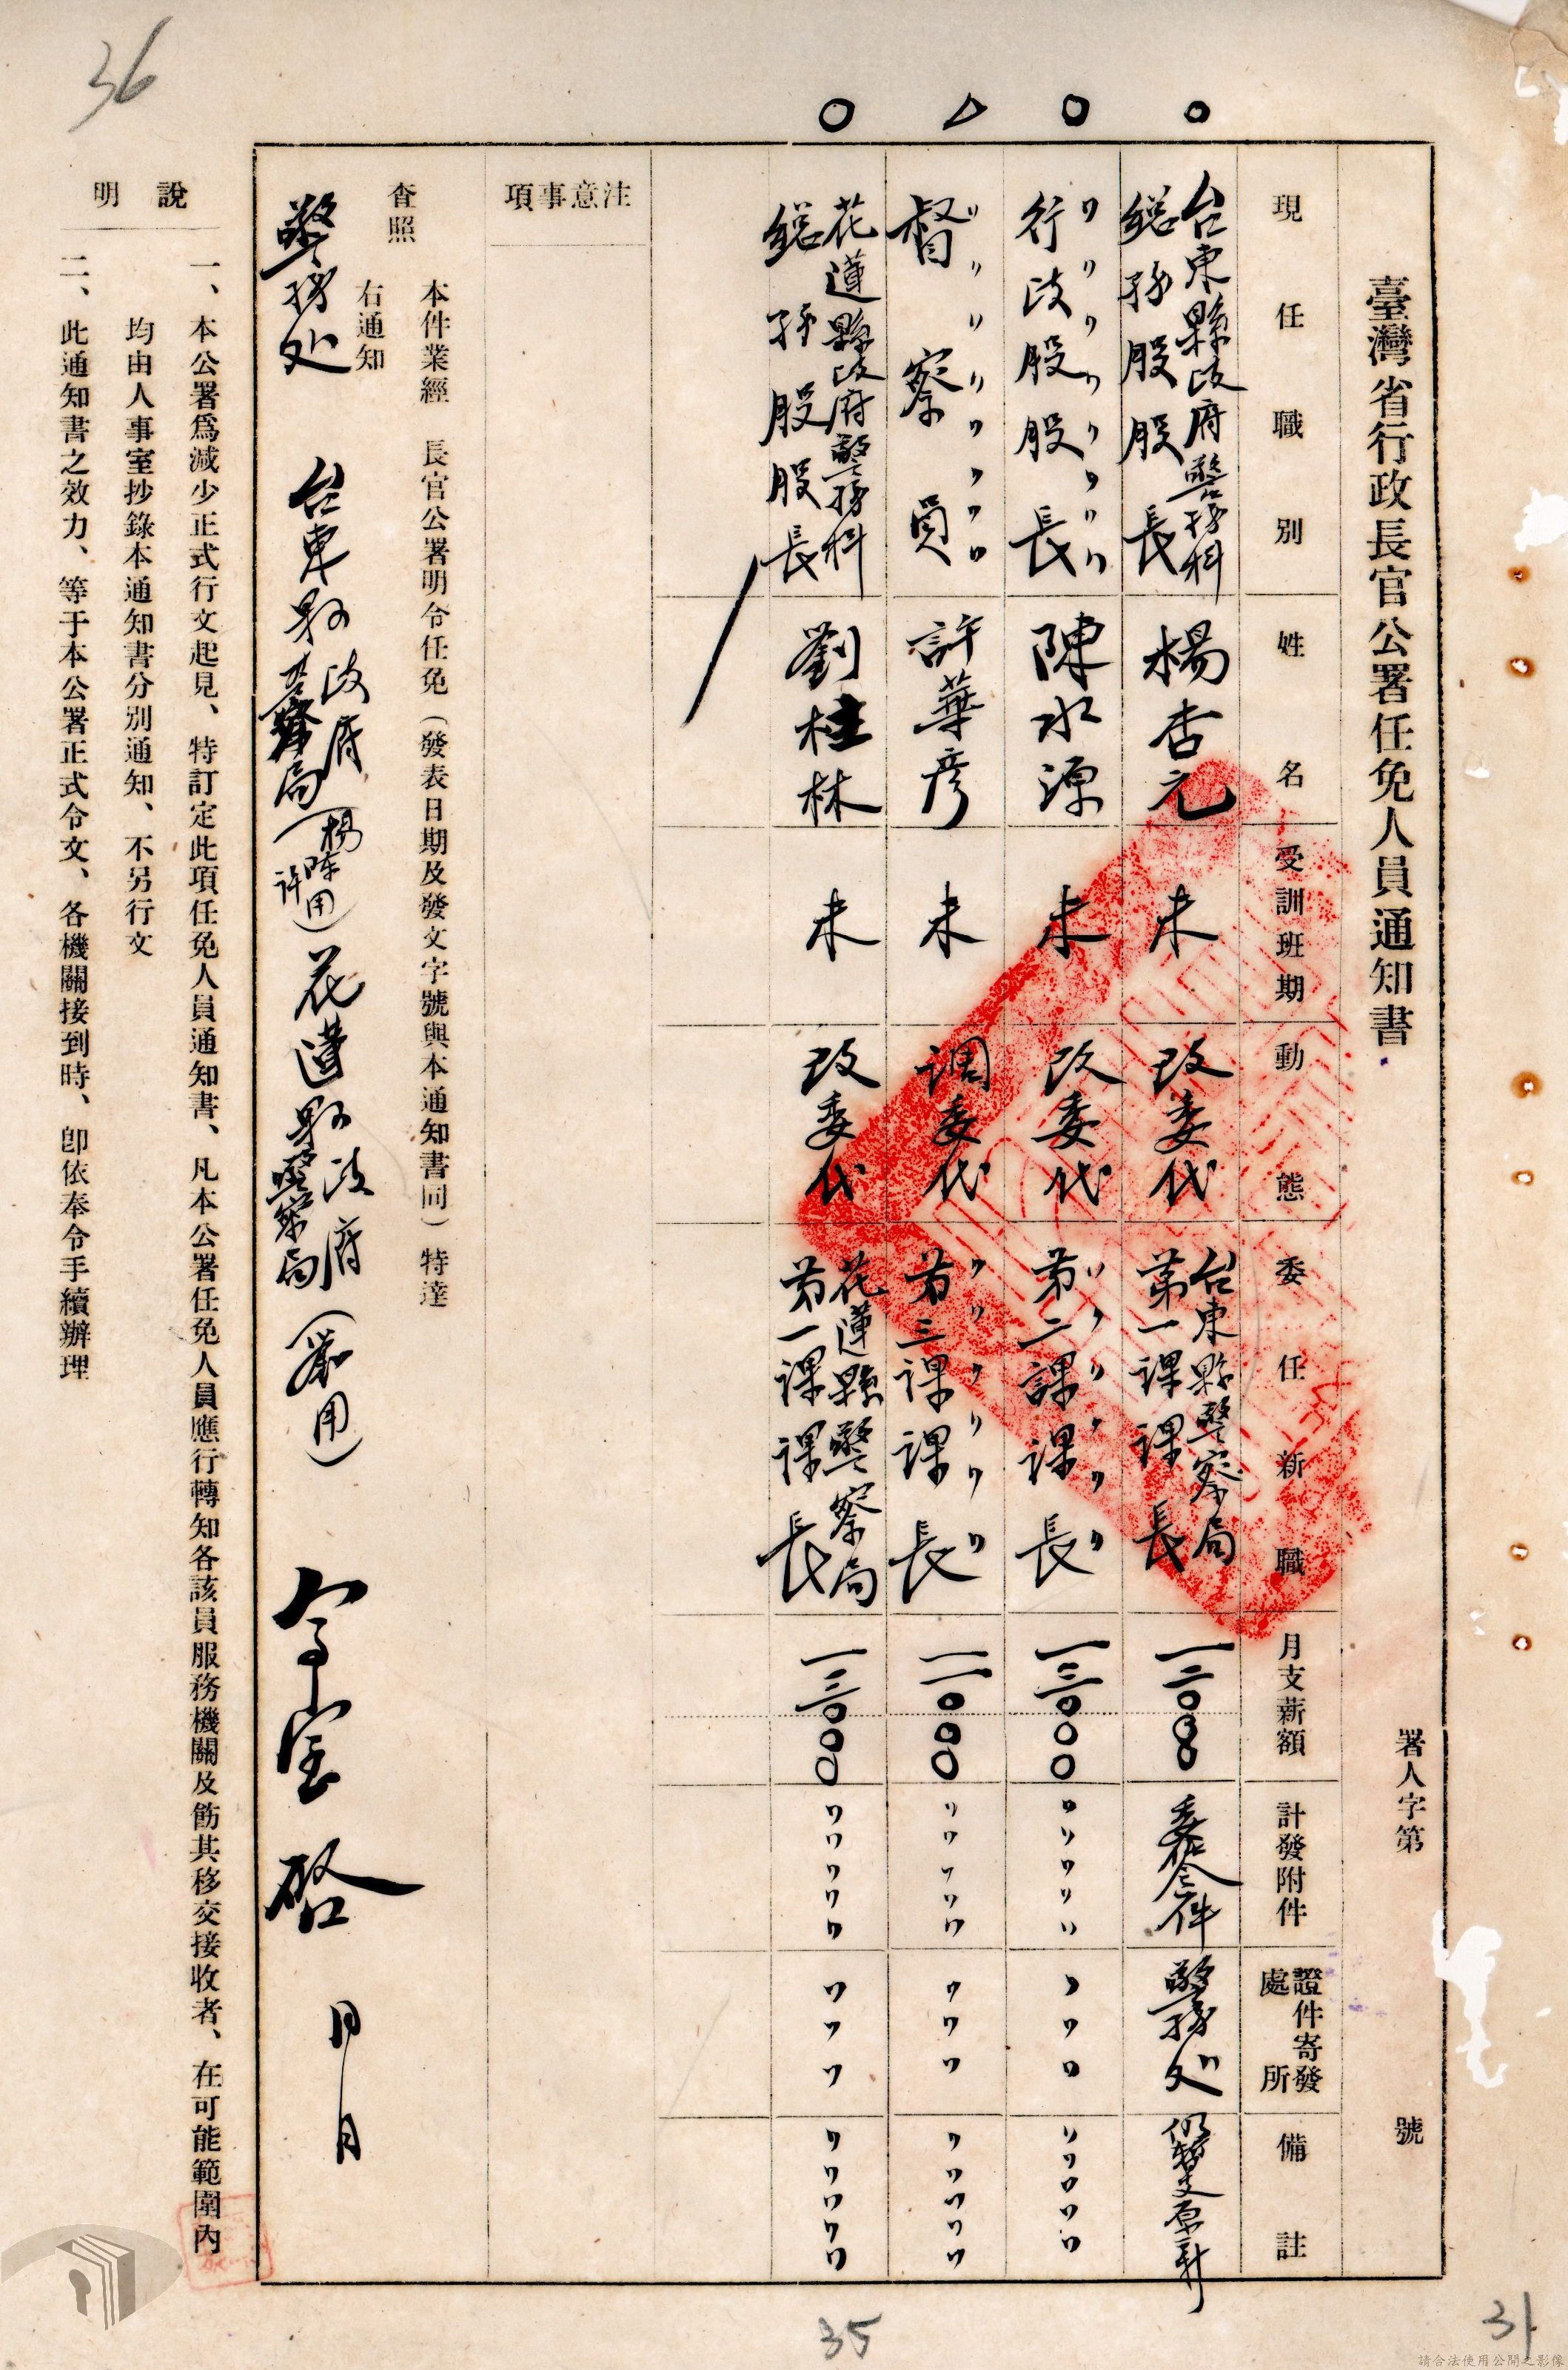 臺灣省行政長官公署任免人員通知書
署人字第 號
現任職別
姓名
受訓班期
動態
委任新職
月支薪額
計發附件
證件寄發處所
備註
台東縣政府警務科
總務股股長
楊杏元
未
改委代
台東縣警察局
第一課課長
一二〇〇〇
委令一件
警務处
仍暫支原薪
〃〃〃〃〃〃〃〃
行政股股長
陳水源
未
改委代
〃〃〃〃〃〃
第二課課長
一三〇〇〇
〃〃〃〃〃
〃〃〃
〃〃〃〃〃
〃〃〃〃〃〃〃〃
督察員
許華彥
未
調委代
〃〃〃〃〃〃
第三課課長
一一〇〇〇
〃〃〃〃〃
〃〃〃
〃〃〃〃〃
花蓮縣政府警務科
總務股股長
劉桂林
未
改委代
花蓮縣警察局
第一課課長
一三〇〇〇
〃〃〃〃〃
〃〃〃
〃〃〃〃〃
注意事項
本件業經 長官公署明令任免(發表日期及發文字號與本通知書同)特達
查照
右通知
警務处 台東縣政府警察局(楊陳許用)花蓮縣政府警察局(劉用)
月 日
說明
一、本公署爲減少正式行文起見、特訂定此項任免人員通知書、凡本公署任免人員應行轉知各該員服務機關及飭其移交接收者、在可能範圍內
均由人事室抄錄本通知書分別通知、不另行文
二、此通知書之效力、等于本公署正式令文、各機關接到時、卽依奉令手續辦理
36
35
31
請合法使用公開之影像